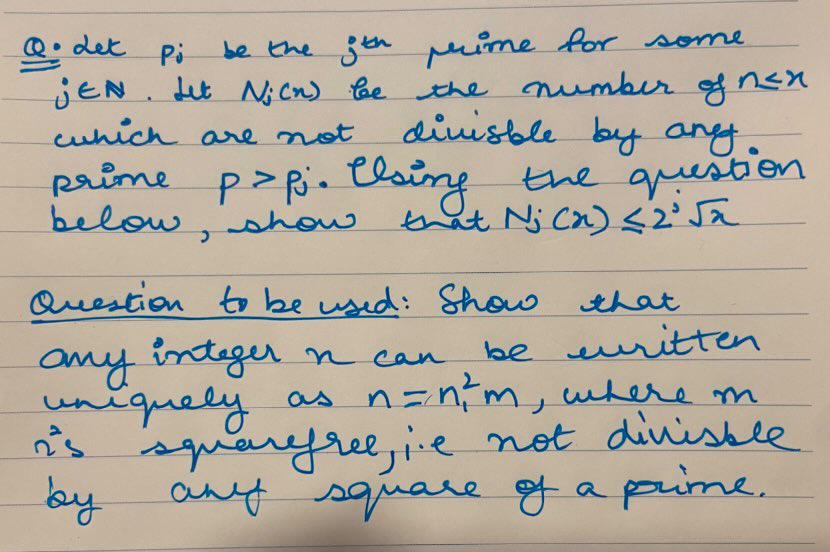 Q. Let pj be the jth prime for some
j∈N. Let Nj(x) be the number of n≤x
which are not divisble by any
prime p > pj. Using the question
below, show that Nj(x) ≤ 2^j √x
Question to be used: Show that
any integer n can be written
uniquely as n = n₁²m, where m
is squarefree, i.e not divisble
by any square of a prime.